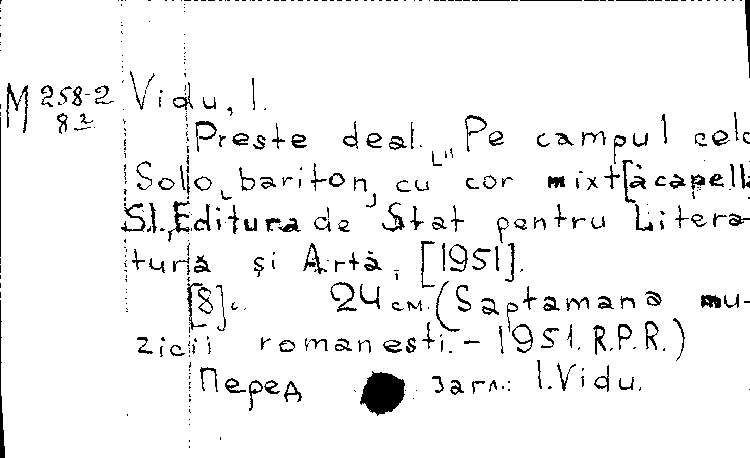 M 258-2 Vidu, I.
8 2
Preste deal. „Pe campul celo
Solo bariton, cu cor mixt [à capell
S.l., Editura de Stat pentru Litera-
tură și Artă, [1951].
[8] с. 24 см. (Saptamana mu-
zicii romanesti. - 1951. R.P.R.)
Перед загл.: I. Vidu.